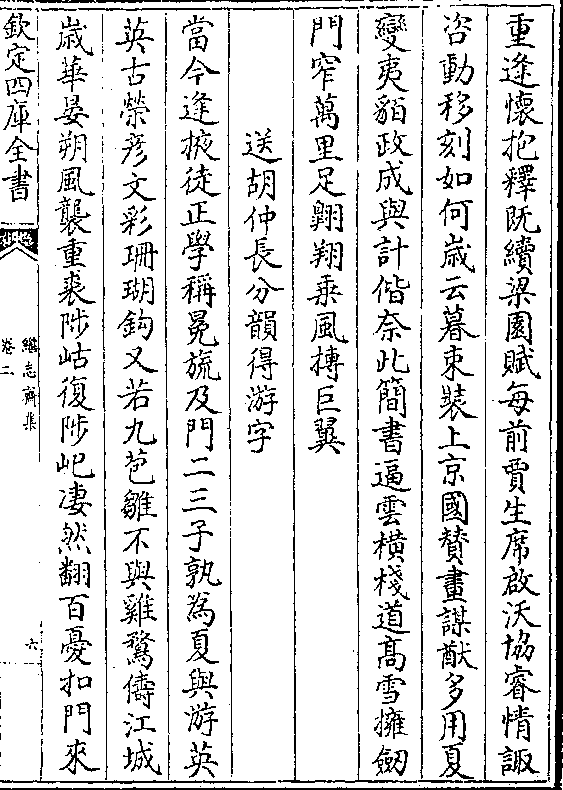 重逢懐抱釋既續梁園賦每前賈生席啟沃協睿情諏
咨動移刻如何嵗云暮束裝上京國賛畫謀猷多用夏
變夷貊政成與計偕奈此簡書逼雲横棧道髙雪擁劒
門窄萬里足翺翔乗風摶巨翼
送胡仲長分韻得游字
當今逢掖徒正學稱冕旒及門二三子孰為夏與游英
英古榮彦文彩珊瑚鈎又若九苞雛不與雞鶩儔江城
嵗華晏朔風襲重裘陟岵復陟屺凄然翻百憂扣門來
欽定四庫全書
繼志齋集
卷二
六